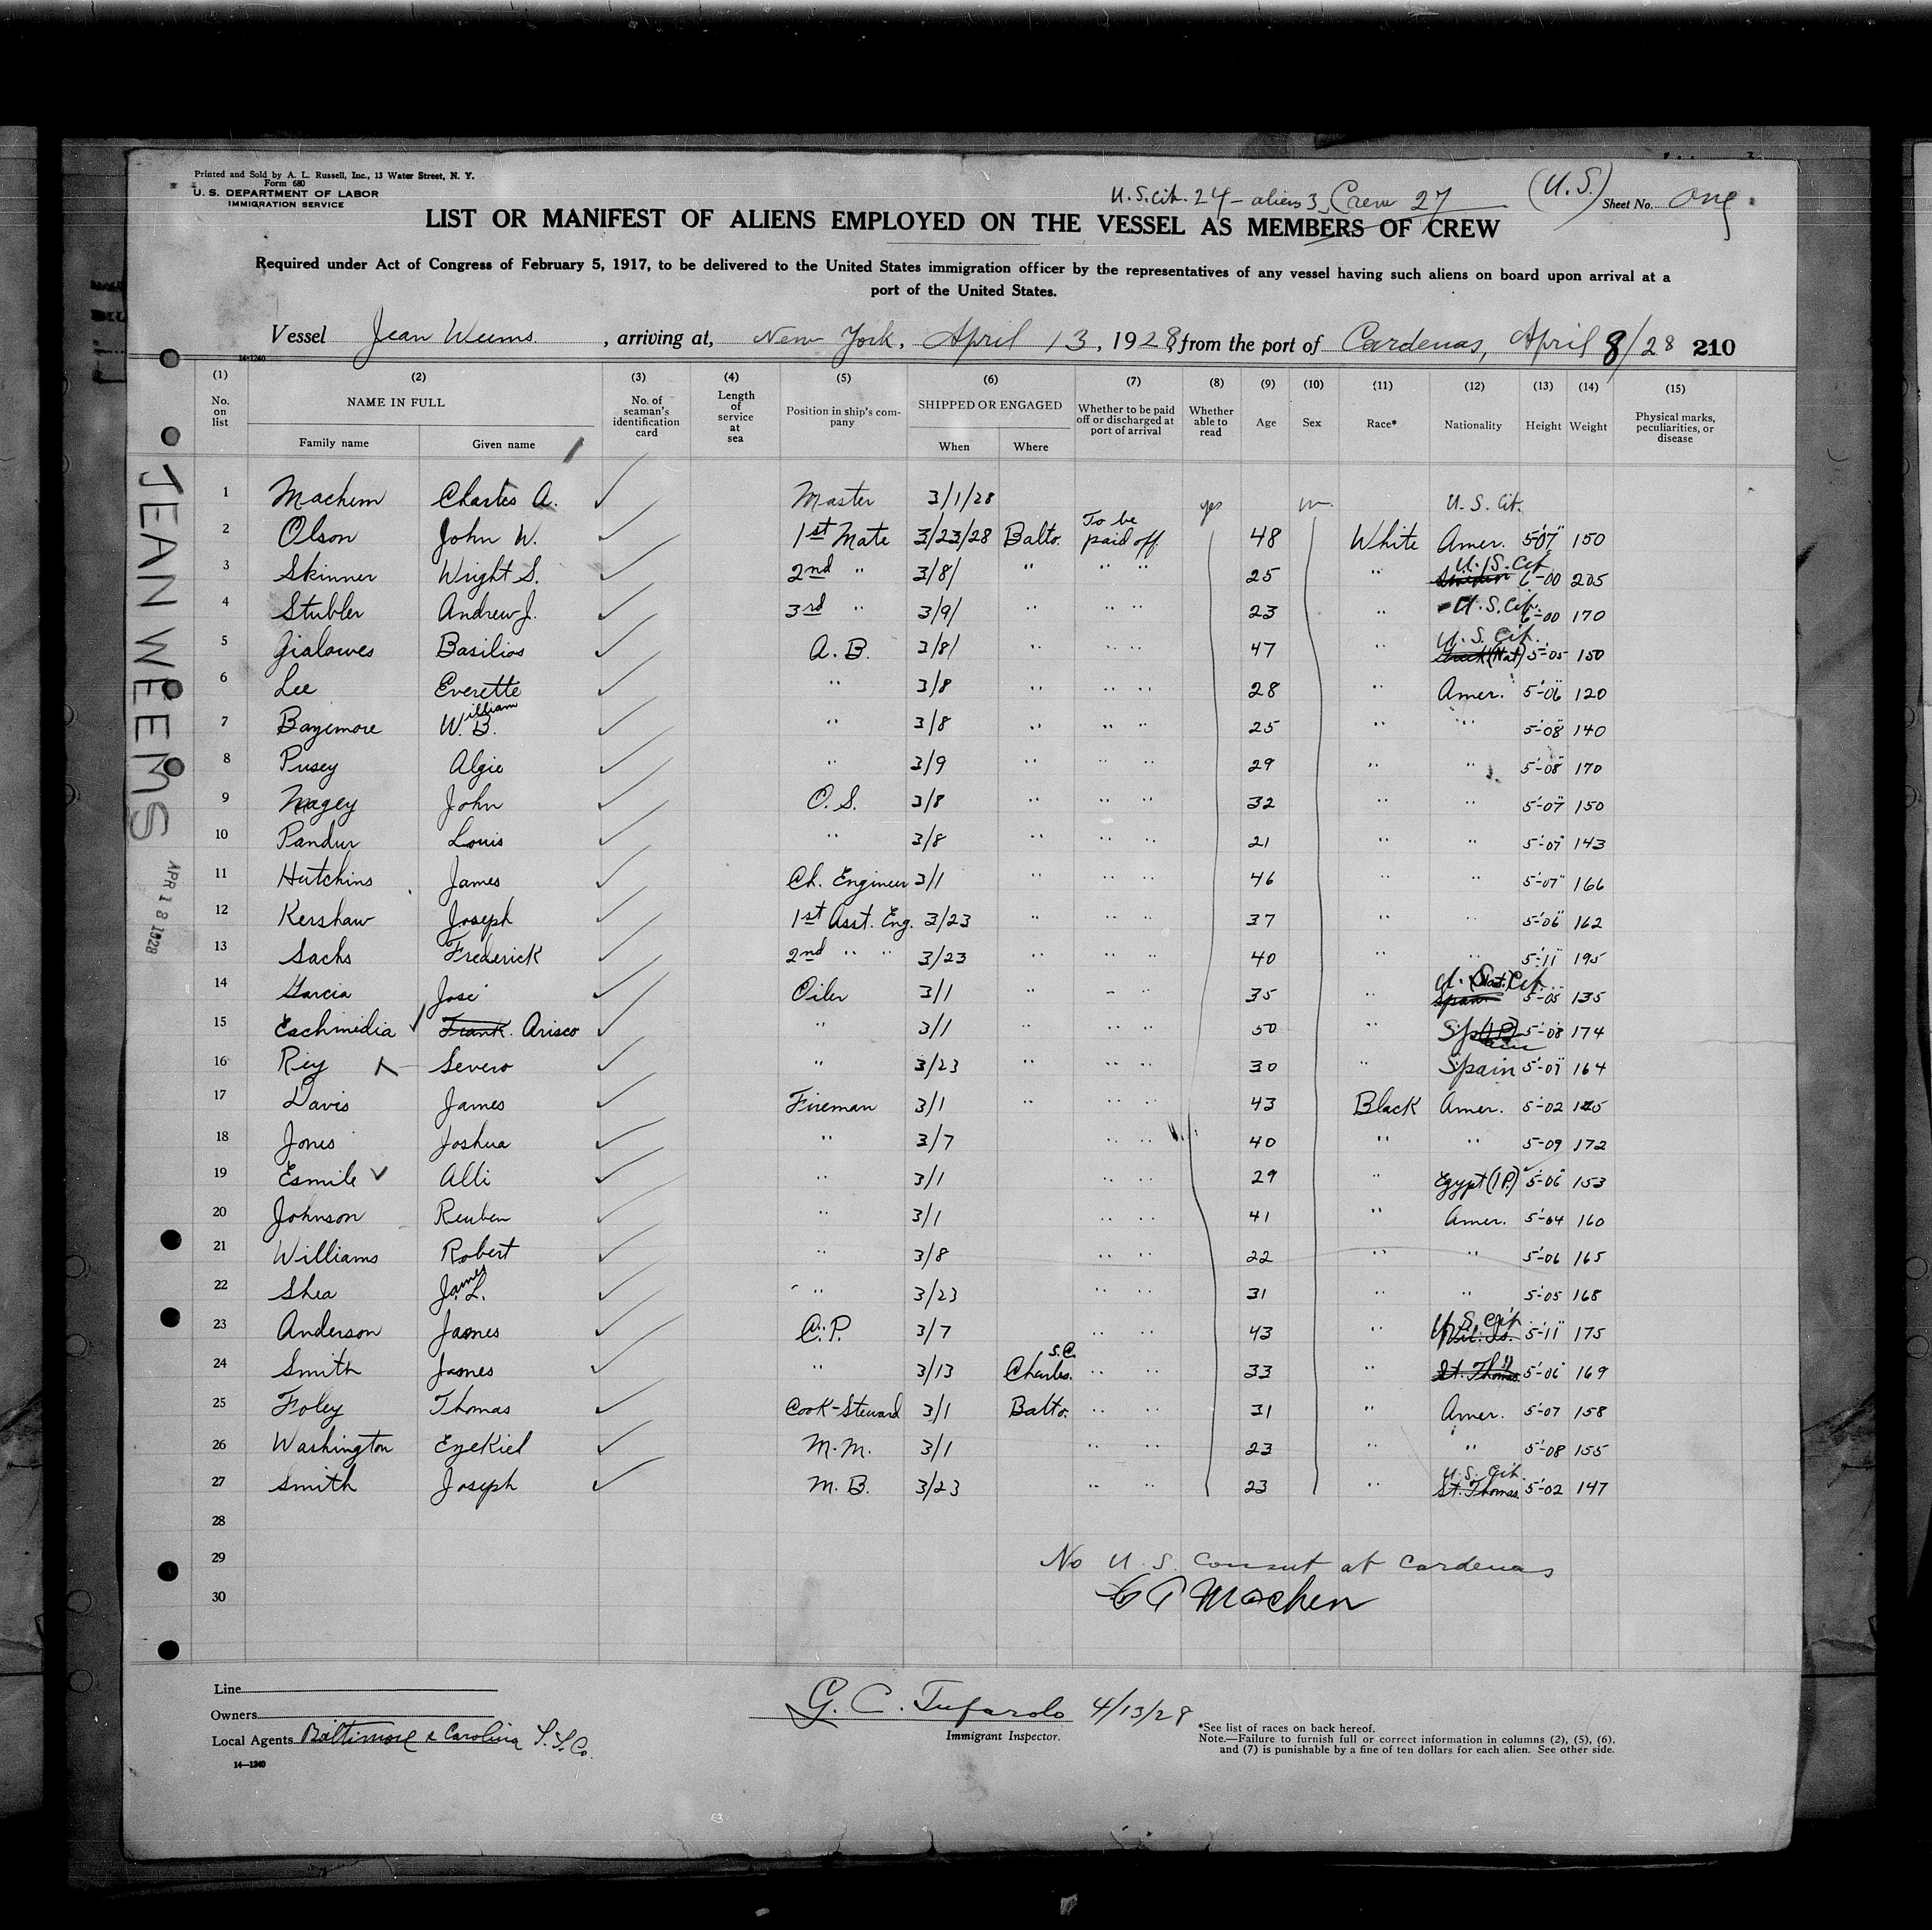 Printed and Sold by A. L. Russell, Inc., 13 Water Street, N. Y.
Form 680
U. S. DEPARTMENT OF LABOR
IMMIGRATION SERVICE
U.S. Cit. 24 - aliens 3, Crew 27 (U.S.) Sheet No. One
LIST OR MANIFEST OF ALIENS EMPLOYED ON THE VESSEL AS MEMBERS OF CREW
Required under Act of Congress of February 5, 1917, to be delivered to the United States immigration officer by the representatives of any vessel having such aliens on board upon arrival at a
port of the United States.
Vessel Jean Weems, arriving at, New York, April 13, 1928, from the port of Cardenas, April 8/28 210
14-1240
(1) No. on list
(2) NAME IN FULL Family name Given name
(3) No. of seaman's identification card
(4) Length of service at sea
(5) Position in ship's company
(6) SHIPPED OR ENGAGED When Where
(7) Whether to be paid off or discharged at port of arrival
(8) Whether able to read
(9) Age
(10) Sex
(11) Race*
(12) Nationality
(13) Height
(14) Weight
(15) Physical marks, peculiarities, or disease
1 Machem Charles A. Master 3/1/28 yes m. U. S. Cit.
2 Olson John W. 1st Mate 3/23/28 Balto. To be paid off 48 White Amer. 5'-07" 150
3 Skinner Wright S. 2nd " 3/8/ " " " 25 " U. S. Cit. 6-00 205
4 Stubler Andrew J. 3rd " 3/9/ " " 23 " U. S. Cit. 6-00 170
5 Zialowes Basilios A. B. 3/8/ " " " 47 " U. S. Cit. Greek (Nat) 5'-05 150
6 Lee Everette " 3/8 " " " 28 " Amer. 5'-06" 120
7 Bazemore William W. B. " 3/8 " " " 25 " " 5'-08" 140
8 Pusey Algie " 3/9 " " " 29 " " 5'-08" 170
9 Nagey John O. S. 3/8 " " " 32 " " 5'-07" 150
10 Pandur Louis " 3/8 " " " 21 " " 5'-07" 143
11 Hutchins James Ch. Engineer 3/1 " " " 46 " " 5'-07" 166
12 Kershaw Joseph 1st Asst. Eng. 3/23 " " " 37 " " 5'-06" 162
13 Sachs Frederick 2nd " " 3/23 " " " 40 " " 5'-11" 195
14 Garcia José Oiler 3/1 " " " 35 " U. S. Cit. (Nat.) Spain 5'-05" 135
15 Eachmidia Frank. Arisco " 3/1 " " " 50 " Spain 5'-08 174
16 Rey Severo " 3/23 " " " 30 " Spain 5'-07" 164
17 Davis James Fireman 3/1 " " " 43 Black Amer. 5'-02
18 Jones Joshua " 3/7 " " 40 " " 5-09 172
19 Esmile Alli " 3/1 " " 29 " Egypt (1P.) 5'-06" 153
20 Johnson Reuben " 3/1 " " 41 " Amer. 5'-04 160
21 Williams Robert " 3/8 " " 22 " " 5'-06 165
22 Shea James Ja. L. " 3/23 " " 31 " " 5'-05 168
23 Anderson James C. P. 3/7 " " 43 " U. S. Cit. 5'-11" 175
24 Smith James " 3/13 Charles. S.C. " " 33 " St. Thomas. 5'-06" 169
25 Foley Thomas Cook-Steward 3/1 Balto. " " 31 " Amer. 5'-07 158
26 Washington Ezekiel M. M. 3/1 " " 23 " " 5'-08 155
27 Smith Joseph M. B. 3/23 " " 23 " U. S. Cit. St. Thomas. 5'-02 147
28
29
30
No U. S. Consul at Cardenas
C A Machen
JEAN WEEMS
APR 18 1928
Line
Owners
Local Agents Baltimore & Carolina S.S. Co.
14—1240
G. C. Tufarolo 4/13/28
Immigrant Inspector.
*See list of races on back hereof.
Note.—Failure to furnish full or correct information in columns (2), (5), (6),
and (7) is punishable by a fine of ten dollars for each alien. See other side.